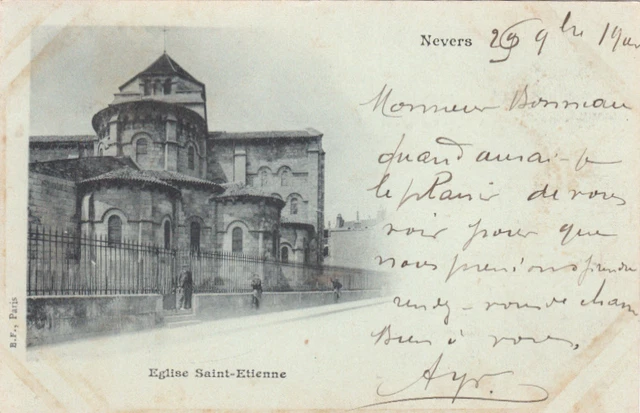 Nevers 29 9bre 1900
Monsieur Bonneau
quand aurai-je
le plaisir de vous
voir pour que
nous prenions
rendez-vous
Bien à vous,
B.F., Paris
Eglise Saint-Etienne